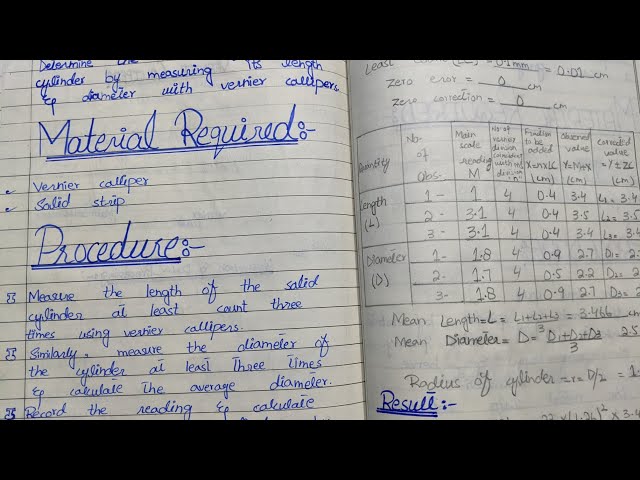 Determine the
cylinder by measuring its length
& diameter with vernier callipers
Material Required:-
Vernier calliper
Solid strip
Procedure:-
Measure the length of the solid
cylinder at least count three
times using vernier callipers.
Similarly, measure the diameter of
the cylinder at least three times
& calculate the average diameter.
Record the reading & calculate
Least = 0.1mm = 0.01 cm
zero error = 0 cm
zero correction = 0 cm
Quantity No. of Obs. Main scale reading M No. of vernier division coincident with ms division "n" Fraction to be added X=nxLC (cm) observed value Y=M+X (cm) corrected value =Y±ZC (cm)
Length (L) 1- 1 4 0.4 3.4 L₁= 3.4
2- 3.1 4 0.4 3.5 L₂= 3.5
3- 3.1 4 0.4 3.4 3.4
Diameter (D) 1- 1.8 4 0.9 2.7 D₁= 2.7
2- 1.7 4 0.5 2.2 D₂= 2
3- 1.8 4 0.9 2.7 D₃= 2
Mean Length=L = L₁+L₂+L₃ = 3.466 cm
3
Mean Diameter= D= D₁+D₂+D₃ 2.5
3
Radius of cylinder=r= D/2 = 1.
Result:-
22 x (1.26)² x 3.4